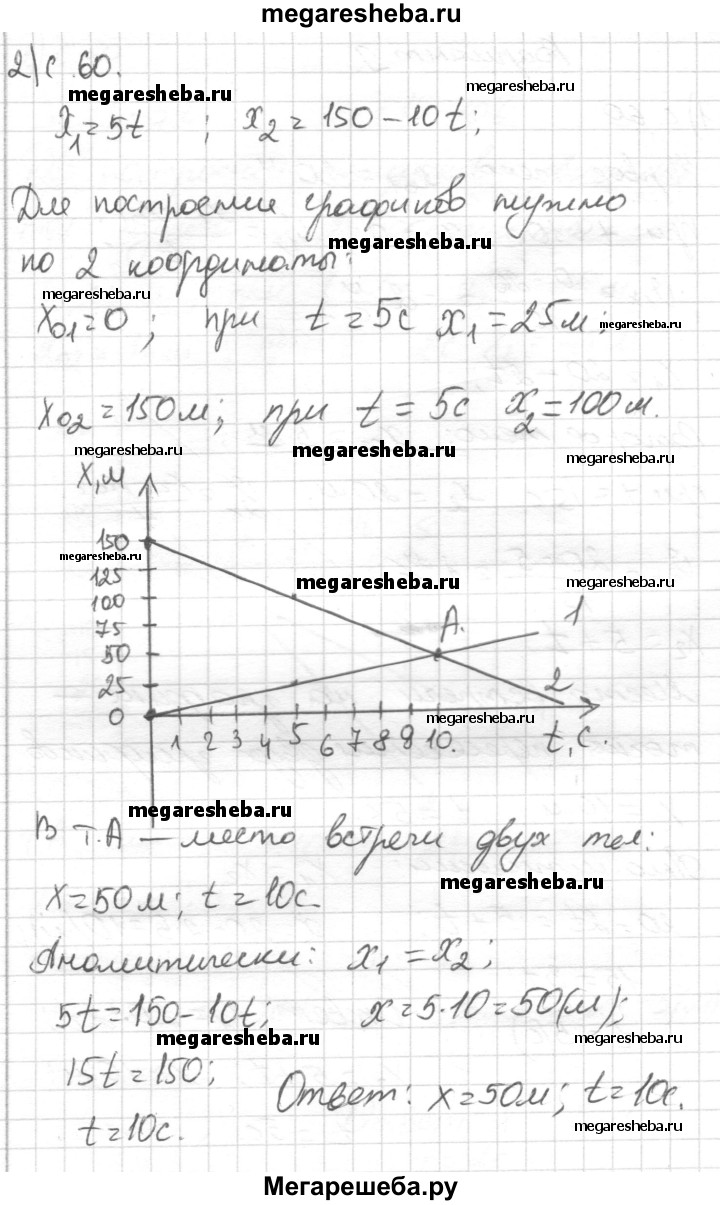 megaresheba.ru
2) с 60.
megaresheba.ru
x₁=5t ; x₂=150-10t;
Для построение графиков нужно
megaresheba.ru
по 2 координаты:
megaresheba.ru
x₀₁=0; при t=5с x₁=25м; megaresheba.ru
x₀₂=150м; при t=5с x₂=100м.
megaresheba.ru megaresheba.ru megaresheba.ru
X,м
150
megaresheba.ru
125 megaresheba.ru megaresheba.ru
100
75 A. 1
50
25 2
0 megaresheba.ru
1 2 3 4 5 6 7 8 9 10. t,с.
megaresheba.ru
В т.А — место встречи двух тел:
megaresheba.ru
x=50м; t=10с.
Аналитически: x₁=x₂;
5t=150-10t; x=5·10=50(м);
megaresheba.ru megaresheba.ru
15t=150;
Ответ: x=50м; t=10с.
t=10с.
megaresheba.ru
Мегарешеба.ру